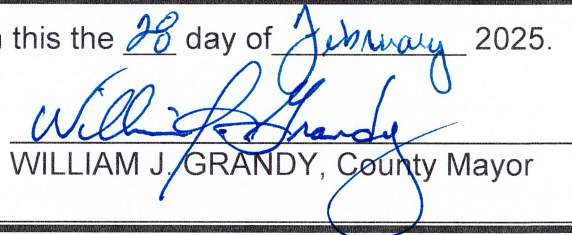 this the 28 day of February 2025.
William J. Grandy
WILLIAM J. GRANDY, County Mayor